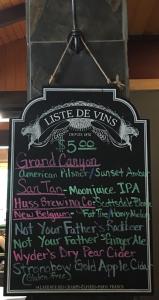 LISTE DE VINS
DEPUIS 1876
$5.00
Grand Canyon
American Pilsner/Sunset Amber
San Tan - Moonjuice IPA
Huss Brewing Co - Scottsdale Blonde
New Belgium - Fat Tire/Honey Melon
Not Your Father's Root Beer
Not Your Father's Ginger Ale
Wyder's Dry Pear Cider
Strongbow Gold Apple Cider
(Gluten Free)
PARIS FRANCE